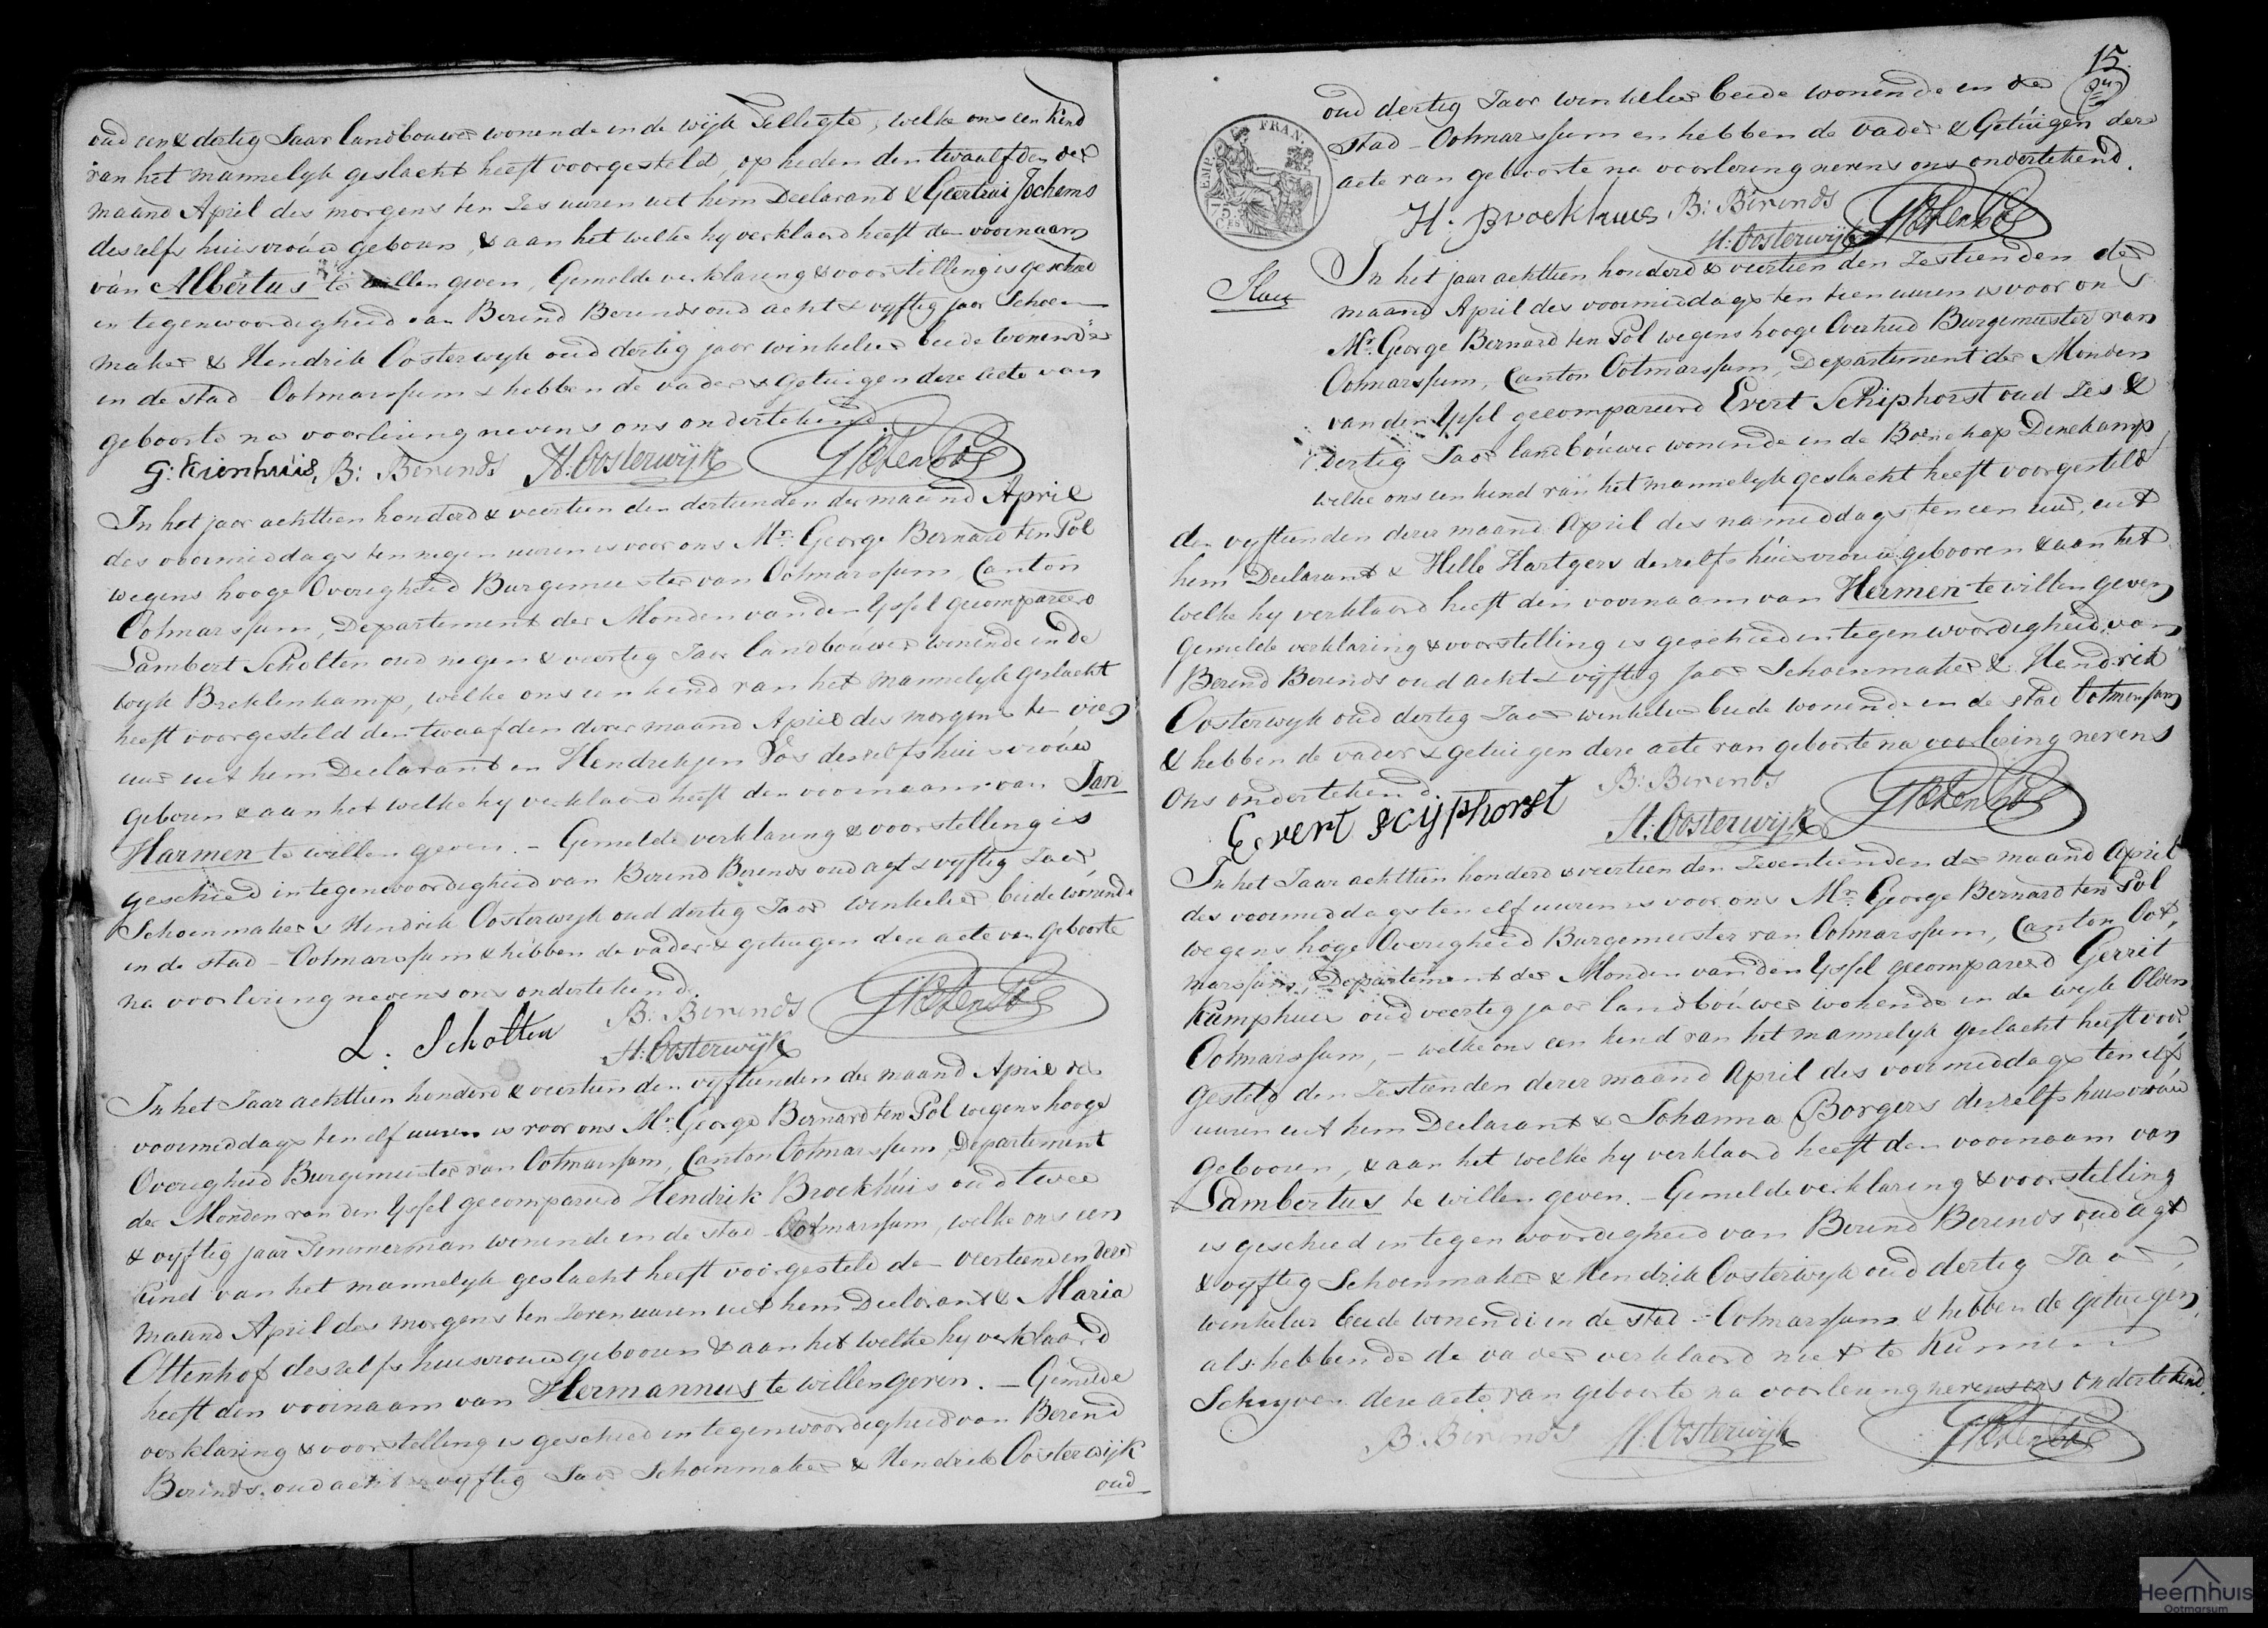 oud een & dertig Jaar landbouwer wonende in de wijk Tilligte, welke ons een kind
van het mannelyk geslacht heeft voorgesteld, op heden den twaalfden der
maand April des morgens ten Zes uuren uit hem Declarand & Geertrui Jochems
deszelfs huisvrouw geboren, & aan het welke hy verklaard heeft den voornaam
van Albertus te willen geven, Gemelde verklaring & voorstelling is geschied
in tegenwoordigheid van Berend Berends oud acht & vyftig jaar Schoen
maker & Hendrik Oosterwyk oud dertig jaar winkelier beide wonende
in de stad Ootmarssum & hebben de vader & Getuigen deze acte van
geboorte na voorlezing nevens ons ondertekend
G: Kienhuis, B: Berends H: Oosterwijk GB ten Pol
In het jaar achttien honderd & veertien den dertienden der maand April
des voormiddags ten negen uuren is voor ons Mr. George Bernard ten Pol
wegens hooge Overigheid Burgemeester van Ootmarssum, Canton
Ootmarssum, Departement der Monden van den Yssel gecompareerd
Lambert Scholten oud negen & veertig Jaar landbouwer wonende in de
wyk Breklenkamp, welke ons een kind van het mannelyk geslacht
heeft voorgesteld den twaafden dezer maand April des morgens te vier
uur uit hem Declarant en Hendrekjen Vos deszelfs huisvrouw
geboren & aan het welke hy verklaard heeft den voornaam van Jan
Harmen te willen geven. - Gemelde verklaring & voorstelling is
geschied in tegenwoordigheid van Berend Berends oud agt & vyftig Jaar
Schoenmaker & Hendrik Oosterwyk oud dertig Jaar winkelier beide wonende
in de stad - Ootmarssum & hebben de vader & getuigen deze acte van Geboorte
na voorlezing nevens ons ondertekend.
L. Scholten B: Berends GB ten Pol
H: Oosterwijk
In het Jaar achttien honderd & veertien den vyftienden der maand April des
voormiddags ten elf uuren is voor ons Mr. George Bernard ten Pol wegens hooge
Overigheid Burgemeester van Ootmarssum, Canton Ootmarssum, Departement
der Monden van den Yssel gecompareerd Hendrik Broekhuis oud twee
& vyftig jaar Timmerman wonende in de stad - Ootmarssum, welke ons een
kind van het mannelyk geslacht heeft voorgesteld den veertienden dezer
maand April des morgens ten zeven uuren uit hem Declarant & Maria
Ottenhof deszelfs huisvrouw gebooren & aan het welke hy verklaard
heeft den voornaam van Hermannus te willen geven. - Gemelde
verklaring & voorstelling is geschied in tegenwoordigheid van Berend
Berends. oud acht & vyftig Jaar Schoenmaker & Hendrik Oosterwijk
oud
15.
oud dertig Jaar winkelier beide wonende in de
stad - Ootmarssum en hebben de vader & Getuigen deze
acte van geboorte na voorlezing nevens ons ondertekend.
EMP. FRAN.
75
H. Broekhuis B: Berends GB ten Pol
H: Oosterwijk
In het jaar achttien honderd & veertien den Zestienden der
maand April des voormiddags ten tien uuren is voor ons
Mr. George Bernard ten Pol wegens hooge Overheid Burgemeester van
Ootmarssum, Canton Ootmarssum, Departement der Monden
van den Yssel gecompareerd Evert Schiphorst oud Zes &
dertig Jaar landbouwer wonende in de Boerschap Denekamp
welke ons een kind van het mannelyk geslacht heeft voorgesteld
den vyftienden dezer maand April des namiddags ten een uur, uit
hem Declarant & Hille Hartgers deszelfs huisvrouw gebooren & aan het
welke hy verklaard heeft den voornaam van Hermen te willen geven
Gemelde verklaring & voorstelling is geschied in tegenwoordigheid van
Berend Berends oud acht & vyftig Jaar Schoenmaker & Hendrik
Oosterwyk oud dertig Jaar winkelier beide wonende in de stad Ootmarssum
& hebben de vader & getuigen deze acte van geboorte na voorlezing nevens
Ons ondertekend.
Evert scijphorst B: Berends GB ten Pol
H: Oosterwijk
In het Jaar achttien honderd & veertien den Zeventienden der maand April
des voormiddags ten elf uuren is voor ons Mr. George Bernard ten Pol
wegens hoge Overigheid Burgemeester van Ootmarssum, Canton Oot,
marssum, Departement der Monden van den Yssel gecompareerd Gerrit
Kamphuis oud veertig jaar landbouwer wonende in de wyk Olden
Ootmarssum, - welke ons een kind van het mannelyk geslacht heeft voor
gesteld den Zestienden dezer maand April des voormiddags ten elf
uuren uit hem Declarant & Johanna Borgers deszelfs huisvrouw
gebooren, & aan het welke hy verklaard heeft den voornaam van
Lambertus te willen geven. - Gemelde verklaring & voorstelling
is geschied in tegenwoordigheid van Berend Berends oud agt
& vyftig Schoenmaker & Hendrik Oosterwyk oud dertig Jaar,
winkelier beide wonende in de stad - Ootmarssum & hebben de getuigen
als hebbende de vader verklaard niet te kunnen
Schryven deze acte van geboorte na voorlezing nevens ons ondertekend.
B: Berends H: Oosterwijk GB ten Pol
Heemhuis
Ootmarsum